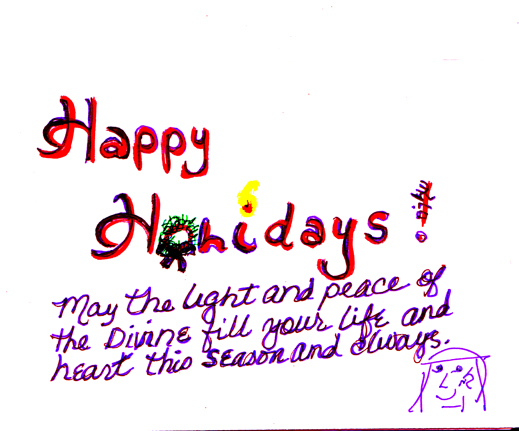 Happy
Holidays!
May the light and peace of
the Divine fill your life and
heart this season and always.